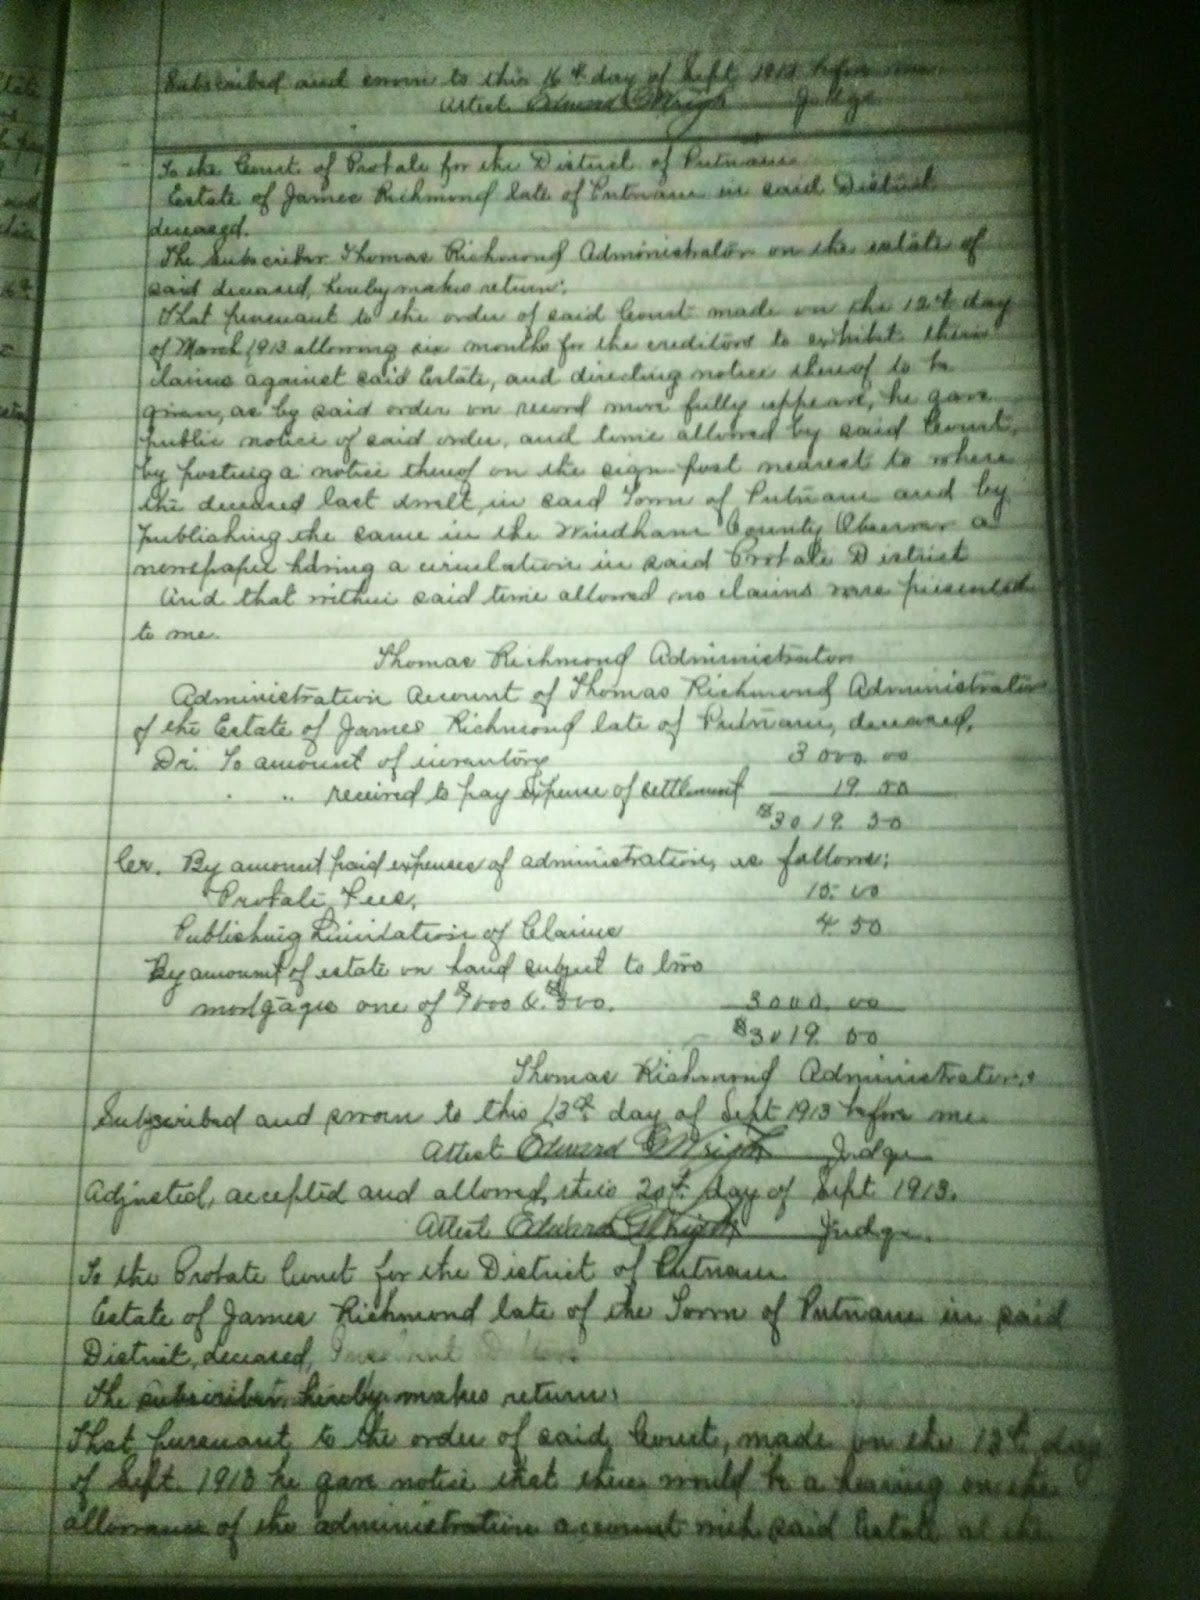 Subscribed and sworn to this 16th day of Sept 1913 before me.
Attest Edward G Wright Judge
To the Court of Probate for the District of Putnam
Estate of James Richmond late of Putnam in said District
deceased.
The Subscriber Thomas Richmond Administrator on the estate of
said deceased, hereby makes return:
That pursuant to the order of said Court made on the 12th day
of March 1913 allowing six months for the creditors to exhibit their
claims against said Estate, and directing notice thereof to be
given, as by said order on record more fully appears, he gave
public notice of said order, and time allowed by said Court,
by posting a notice thereof on the sign post nearest to where
the deceased last dwelt, in said Town of Putnam and by
Publishing the same in the Windham County Observer a
newspaper having a circulation in said Probate District
And that within said time allowed no claims were presented
to me.
Thomas Richmond Administrator
Administration Account of Thomas Richmond Administrator
of the Estate of James Richmond late of Putnam, deceased.
Dr. To amount of inventory 3000.00
" " received to pay Expense of settlement 19 50
$3019 50
Cr. By amount paid expenses of administration, as follows:
Probate Fees, 15.00
Publishing Limitation of Claims 4 50
By amount of estate on hand subject to two
mortgages one of $1000 & $500. 3000.00
$3019 50
Thomas Richmond Administrator
Subscribed and sworn to this 13th day of Sept 1913 before me.
Attest Edward G Wright Judge
Adjusted, accepted and allowed, this 20th day of Sept 1913.
Attest Edward G Wright Judge.
To the Probate Court for the District of Putnam
Estate of James Richmond late of the Town of Putnam in said
District, deceased,
The subscriber, hereby makes return:
That pursuant to the order of said Court, made on the 13th day
of Sept. 1913 he gave notice that there would be a hearing on the
allowance of the administration account with said Estate at the